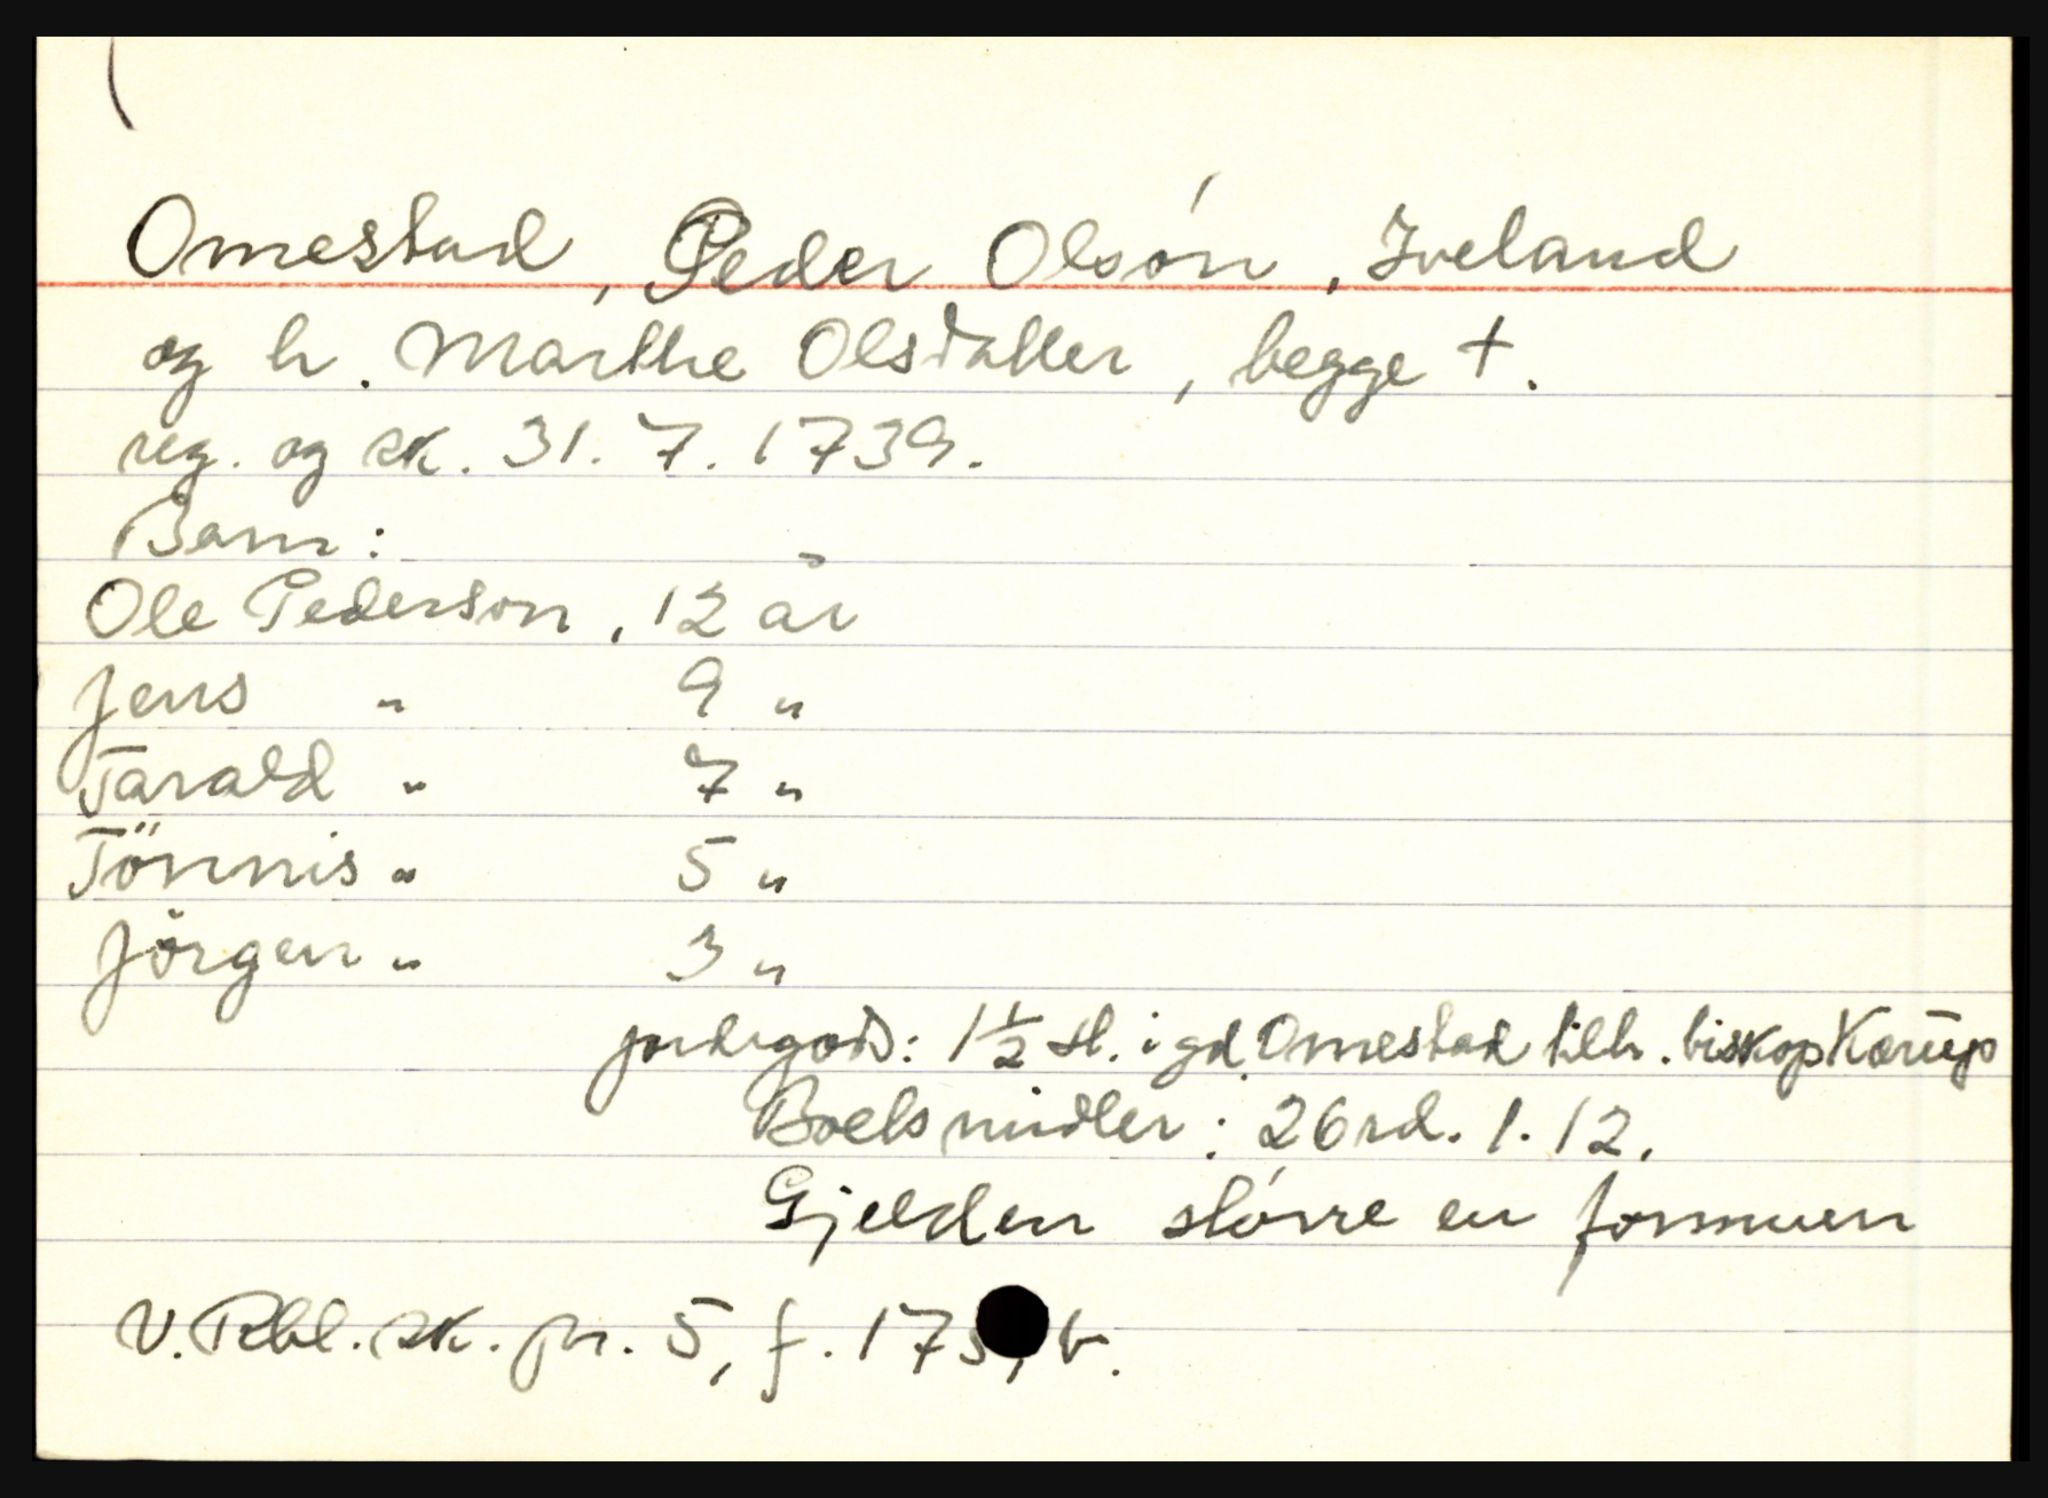 Omestad, Peder Olsón, Iveland
og h. Marthe Olsdatter, begge +.
reg. og sk. 31. 7. 1739.
Barn:
Ole Pederson, 12 år
Jens " 9 "
Tarald " 7 "
Tönnis " 5 "
Jörgen " 3 "
jordegods: 1½ hd. i gd. Omestad tilh. biskop Kærup
Boelsmidler: 26 rd. 1. 12.
Gjelden större en formuen
V. Rbl. sk. pr. 5, f. 175, b.